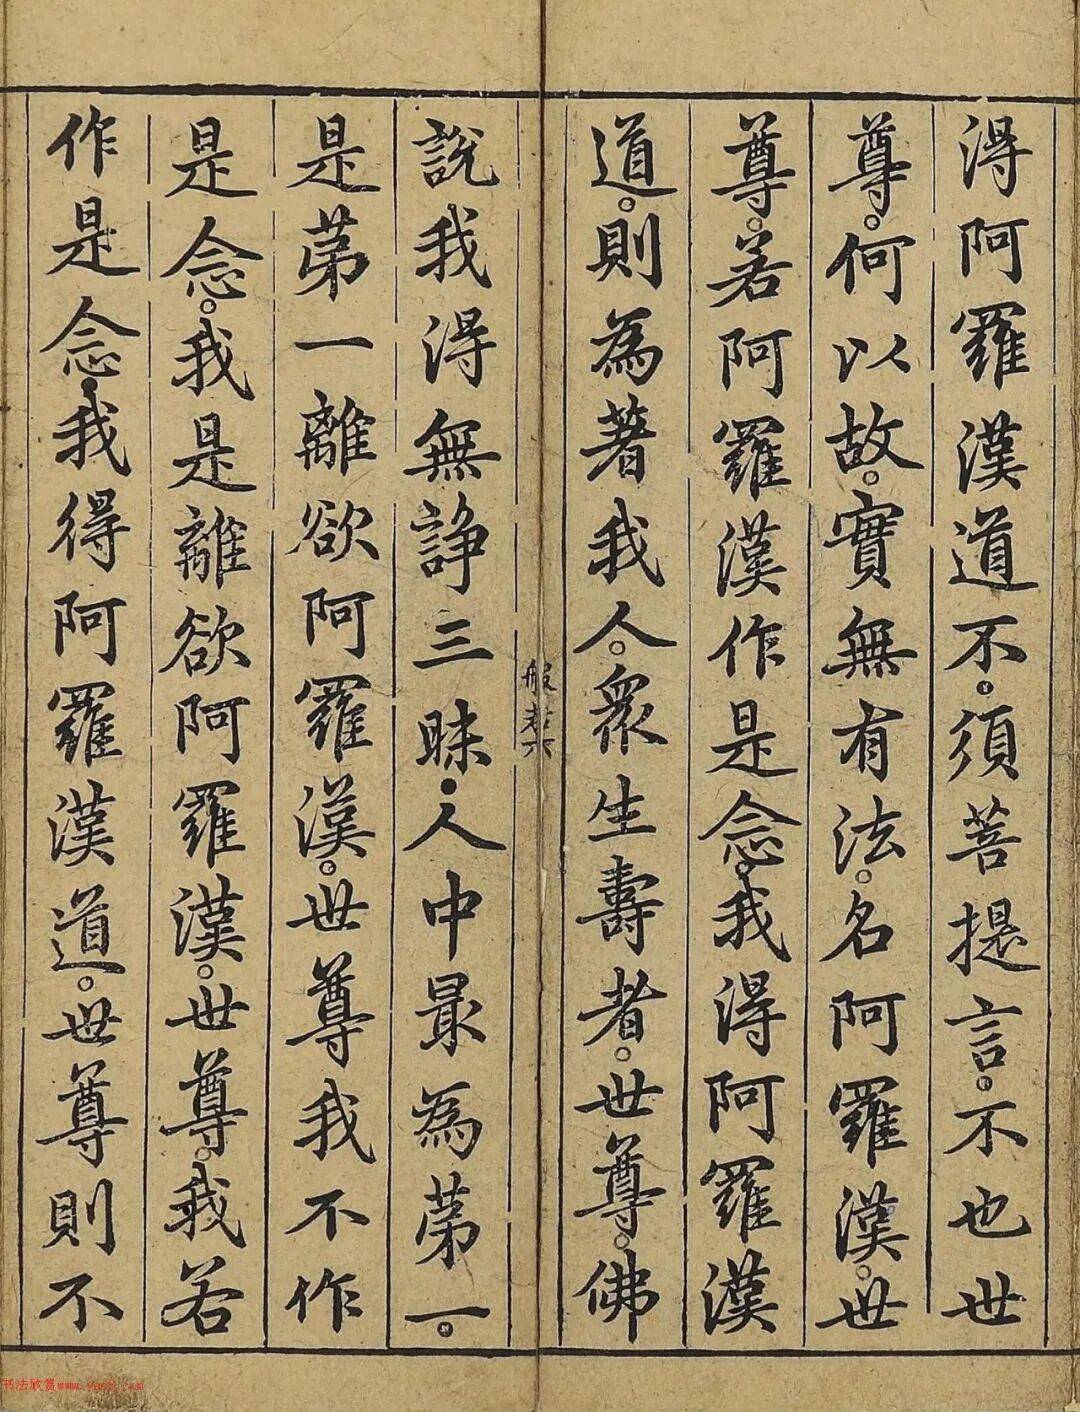 得阿羅漢道不。須菩提言。不也世
尊。何以故。實無有法。名阿羅漢。世
尊。若阿羅漢作是念。我得阿羅漢
道。則為著我人。衆生壽者。世尊。佛
說我得無諍三昧。人中最為第一。
是第一離欲阿羅漢。世尊我不作
是念。我是離欲阿羅漢。世尊。我若
作是念。我得阿羅漢道。世尊則不
書法欣赏www.yac8.com